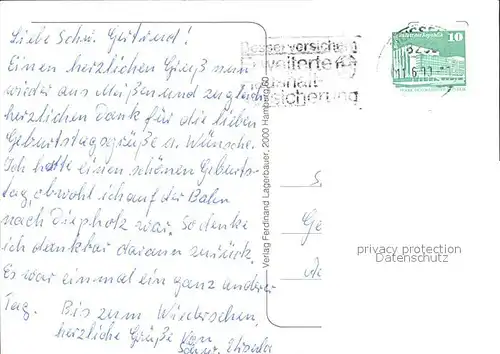 Liebe Schw. Gertrud!
Einen herzlichen Gruß nun
wieder aus Meißen und zugleich
herzlichen Dank für die lieben
Geburtstagsgrüße u. Wünsche.
Ich hatte einen schönen Geburts-
tag, obwohl ich auf der Bahn
nach Diepholz war. So denke
ich dankbar daran zurück.
Es war einmal ein ganz anderer
Tag. Bis zum Wiedersehen,
herzliche Grüße von
Schw.
Besser versichern
erweiterte
Haushalt
versicherung
10
Verlag Ferdinand Lagerbauer, 2000 Hamburg
privacy protection
Datenschutz